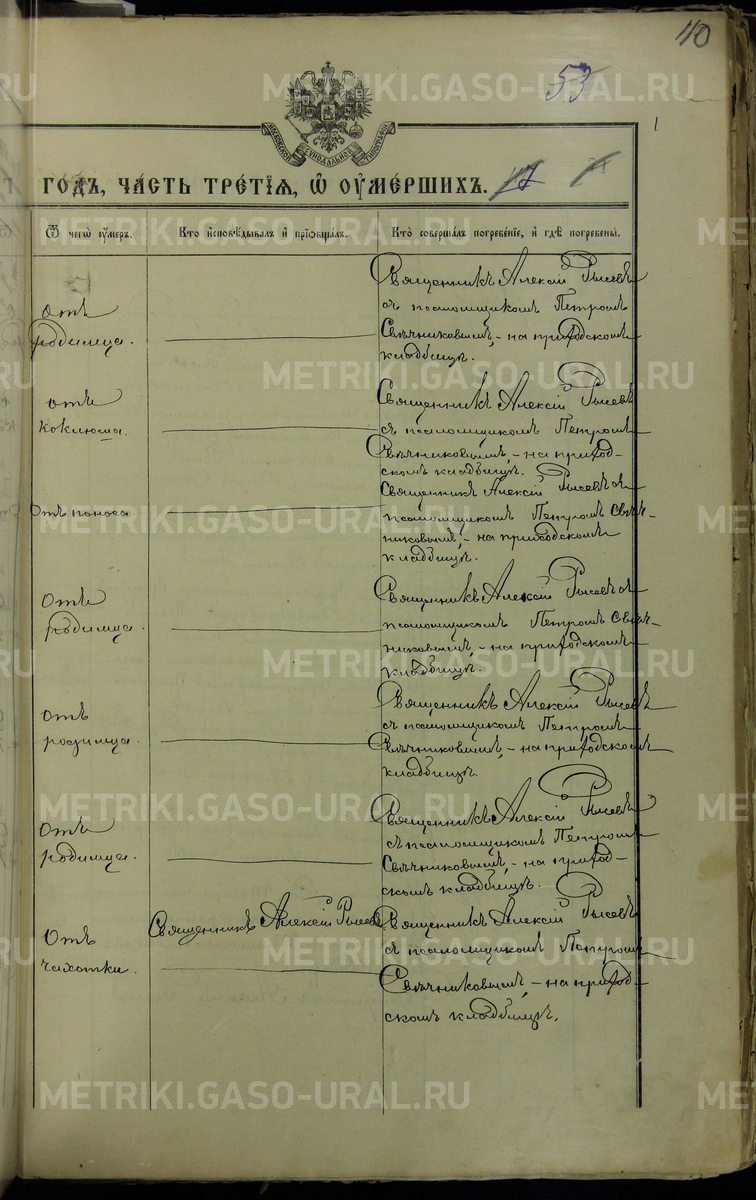 40
53
1
МОСКОВСКОЙ СѴНОДАЛЬНОЙ ТИПОГРАФІИ
ГО́ДЪ, ЧА́СТЬ ТРЕ́ТІѦ, Ѡ҆ ОУ҆МЕ́РШИХЪ.
Ѿ чегѡ̀ оу҆́меръ.
Кто̀ и҆сповѣ́дывалъ и҆ прїѻбща́лъ.
Кто̀ соверша́лъ погребе́нїе, и҆ гдѣ̀ погребены̀.
отъ
родимца.
Священникъ Алексій Рысевъ
съ псаломщикомъ Петромъ
Свѣчниковымъ, - на приходскомъ
кладбищѣ.
отъ
коклюша.
Священникъ Алексій Рысевъ
съ псаломщикомъ Петромъ
Свѣчниковымъ, - на приход-
скомъ кладбищѣ.
отъ поноса.
Священникъ Алексій Рысевъ съ
псаломщикомъ Петромъ Свѣч-
никовымъ, - на приходскомъ
кладбищѣ.
отъ
родимца.
Священникъ Алексій Рысевъ съ
псаломщикомъ Петромъ Свѣч-
никовымъ, - на приходскомъ
кладбищѣ.
отъ
родимца.
Священникъ Алексій Рысевъ
съ псаломщикомъ Петромъ
Свѣчниковымъ, - на приходскомъ
кладбищѣ.
отъ
родимца.
Священникъ Алексій Рысевъ
съ псаломщикомъ Петромъ
Свѣчниковымъ, - на приход-
скомъ кладбищѣ.
отъ
чахотки.
Священникъ Алексій Рысевъ
Священникъ Алексій Рысевъ
съ псаломщикомъ Петромъ
Свѣчниковымъ, - на приход-
скомъ кладбищѣ.
METRIKI.GASO-URAL.RU